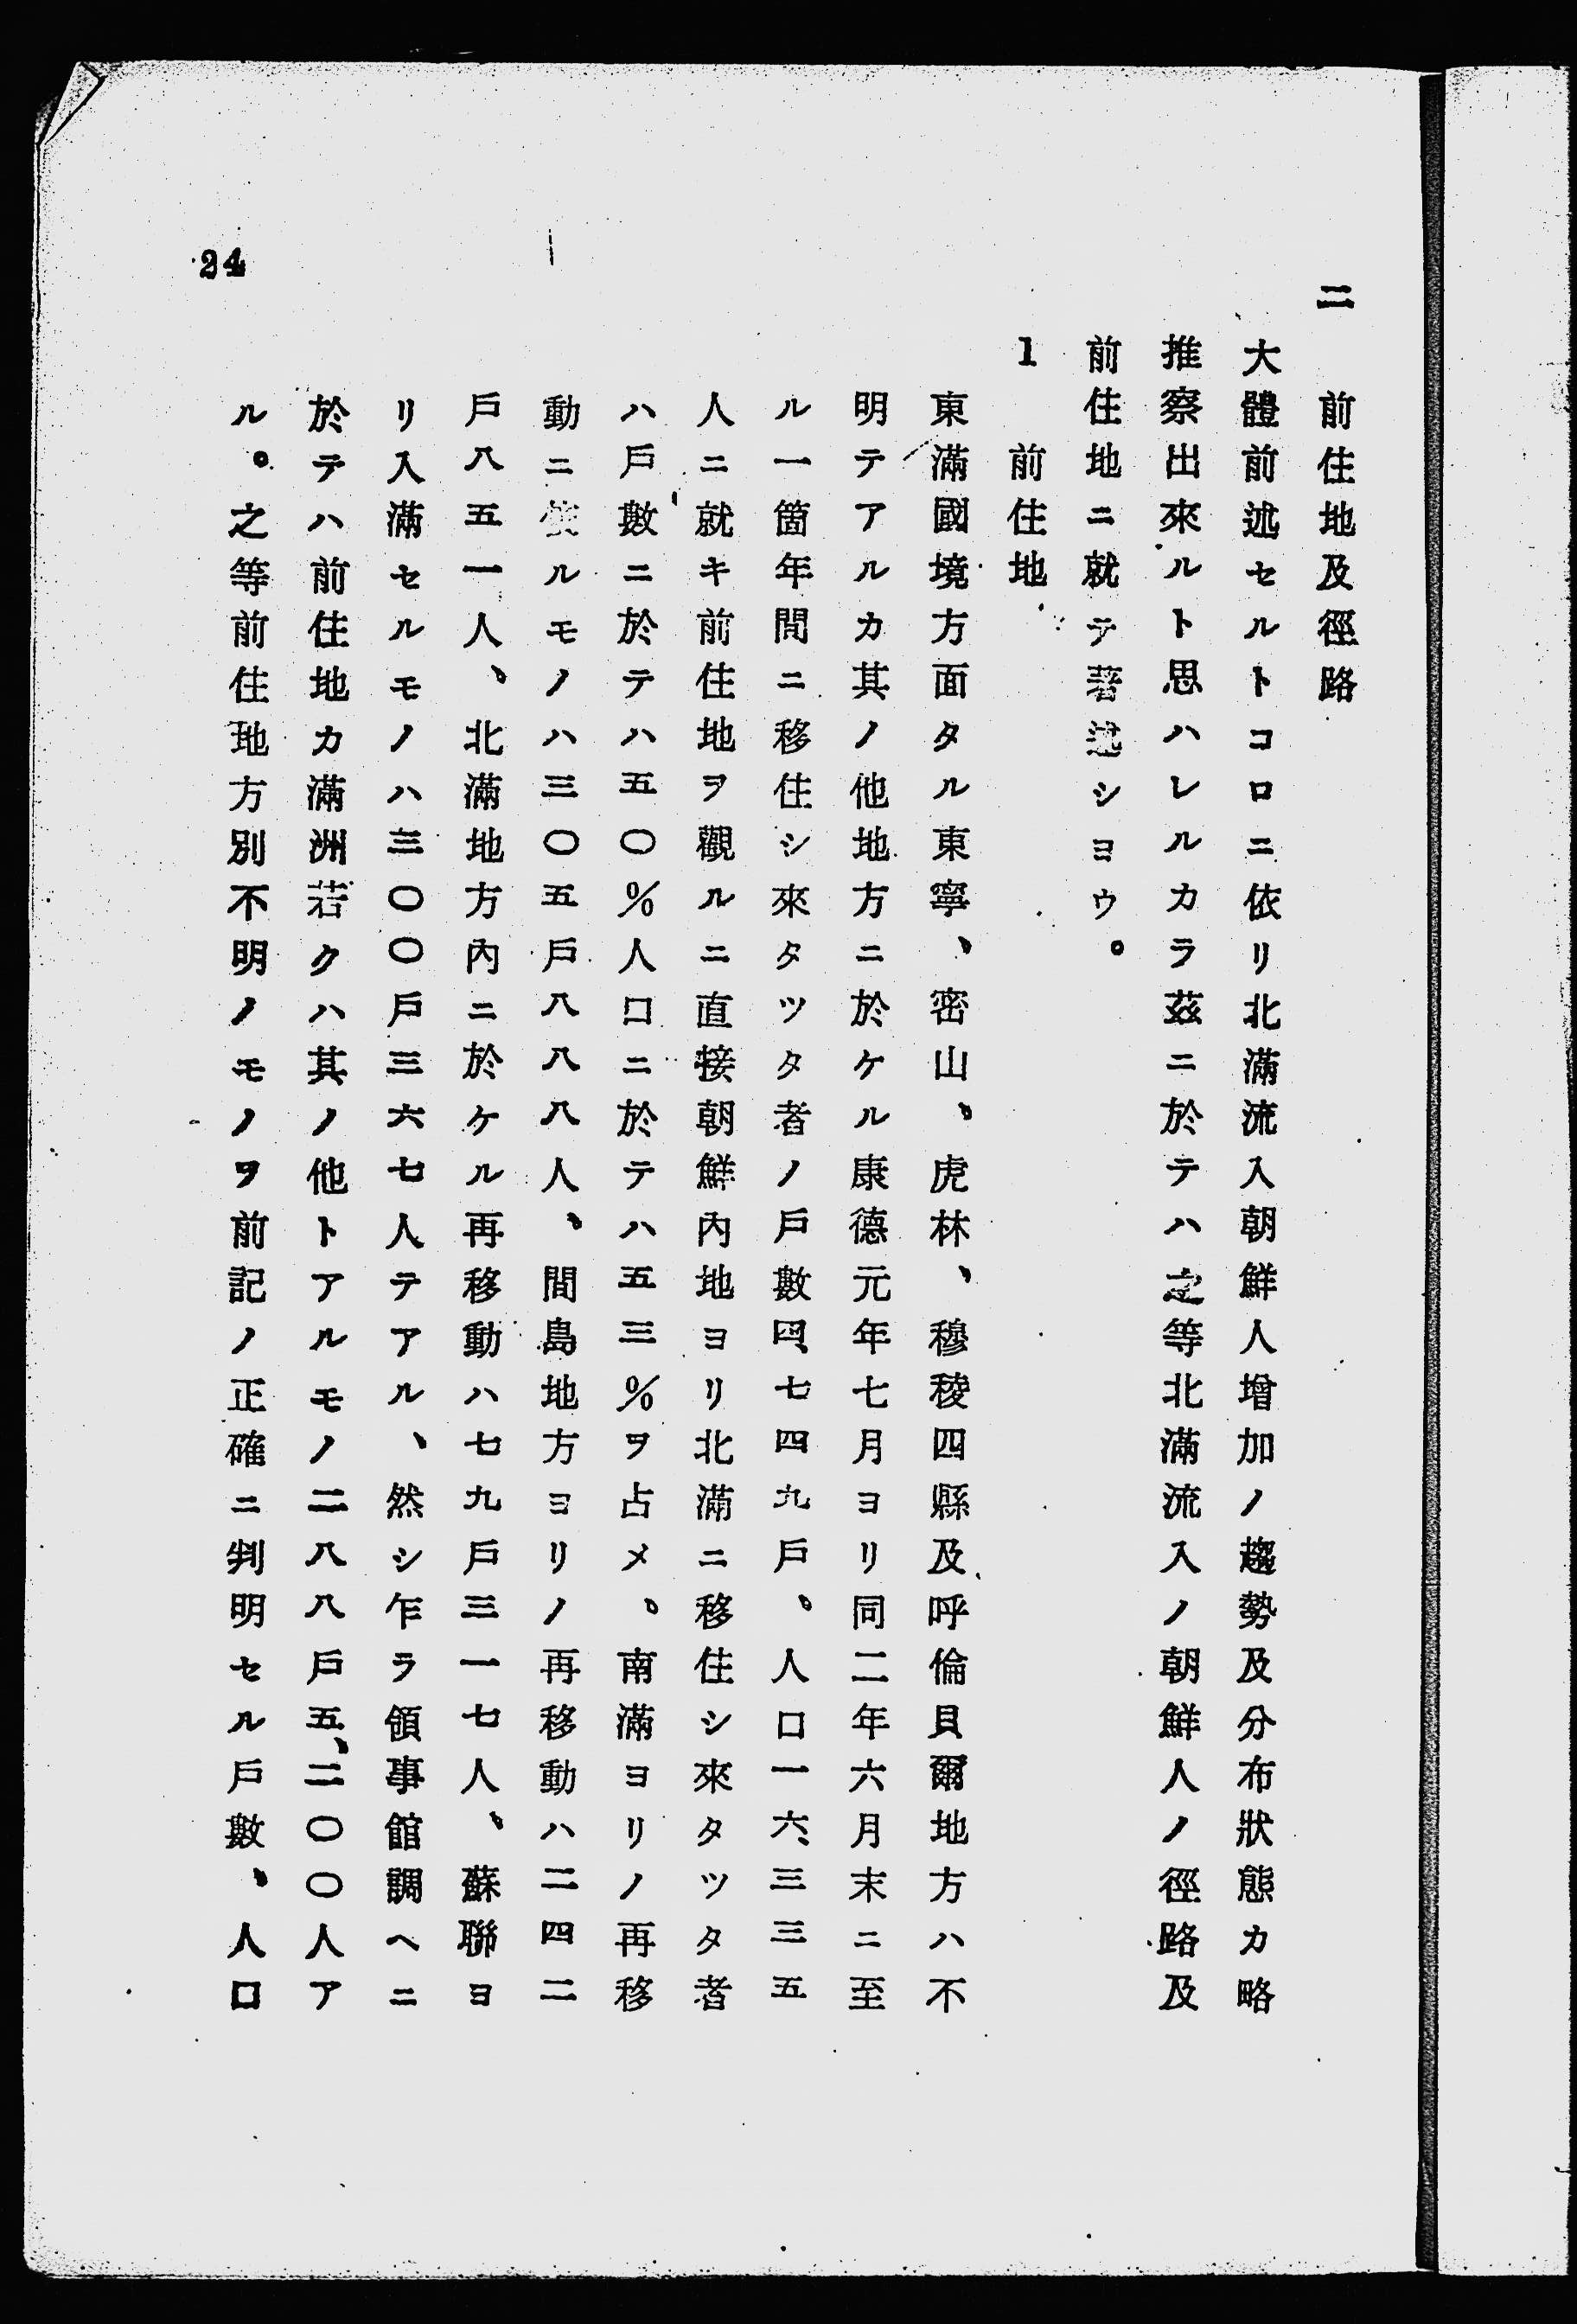 二　前住地及徑路
大體前述セルトコロニ依リ北滿流入朝鮮人增加ノ趨勢及分布狀態カ略
推察出來ルト思ハレルカラ茲ニ於テハ之等北滿流入ノ朝鮮人ノ徑路及
前住地ニ就テ著述シヨウ。
1　前住地
東滿國境方面タル東寧、密山、虎林、穆稜四縣及呼倫貝爾地方ハ不
明テアルカ其ノ他地方ニ於ケル康德元年七月ヨリ同二年六月末ニ至
ル一箇年間ニ移住シ來タツタ者ノ戶數四、七四九戶、人口一六、三三五
人ニ就キ前住地ヲ觀ルニ直接朝鮮內地ヨリ北滿ニ移住シ來タツタ者
ハ戶數ニ於テハ五〇％人口ニ於テハ五三％ヲ占メ、南滿ヨリノ再移
動ニ ルモノハ三〇五戶八八八人、間島地方ヨリノ再移動ハ二四二
戶八五一人、北滿地方內ニ於ケル再移動ハ七九戶三一七人、蘇聯ヨ
リ入滿セルモノハ三〇〇戶三六七人テアル、然シ乍ラ領事館調ヘニ
於テハ前住地カ滿洲若クハ其ノ他トアルモノ二八八戶五、二〇〇人ア
ル。之等前住地方別不明ノモノヲ前記ノ正確ニ判明セル戶數、人口
24